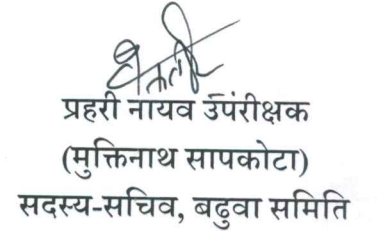 प्रहरी नायव उपंरीक्षक
(मुक्तिनाथ सापकोटा)
सदस्य-सचिव, बढुवा समिति